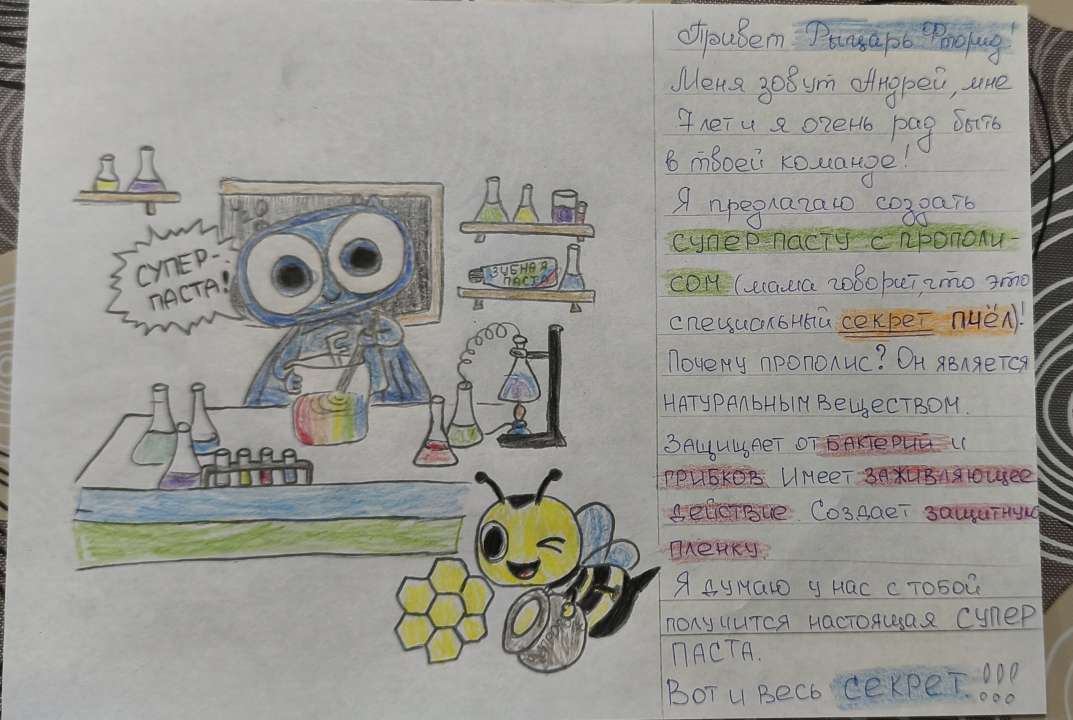 СУПЕР-
ПАСТА!
H2O
ЗУБНАЯ
ПАСТА
Привет Рыцарь Фторид!
Меня зовут Андрей, мне
7 лет и я очень рад быть
в твоей команде!
Я предлагаю создать
СУПЕР ПАСТУ С ПРОПОЛИ-
СОМ (мама говорит, что это
специальный секрет пчёл)!
Почему ПРОПОЛИС? Он является
НАТУРАЛЬНЫМ Веществом.
Защищает от БАКТЕРИЙ и
ГРИБКОВ. Имеет ЗАЖИВЛЯЮЩЕЕ
действие. Создает защитную
пленку.
Я думаю у нас с тобой
получится настоящая СУПЕР
ПАСТА.
Вот и весь СЕКРЕТ.!!!